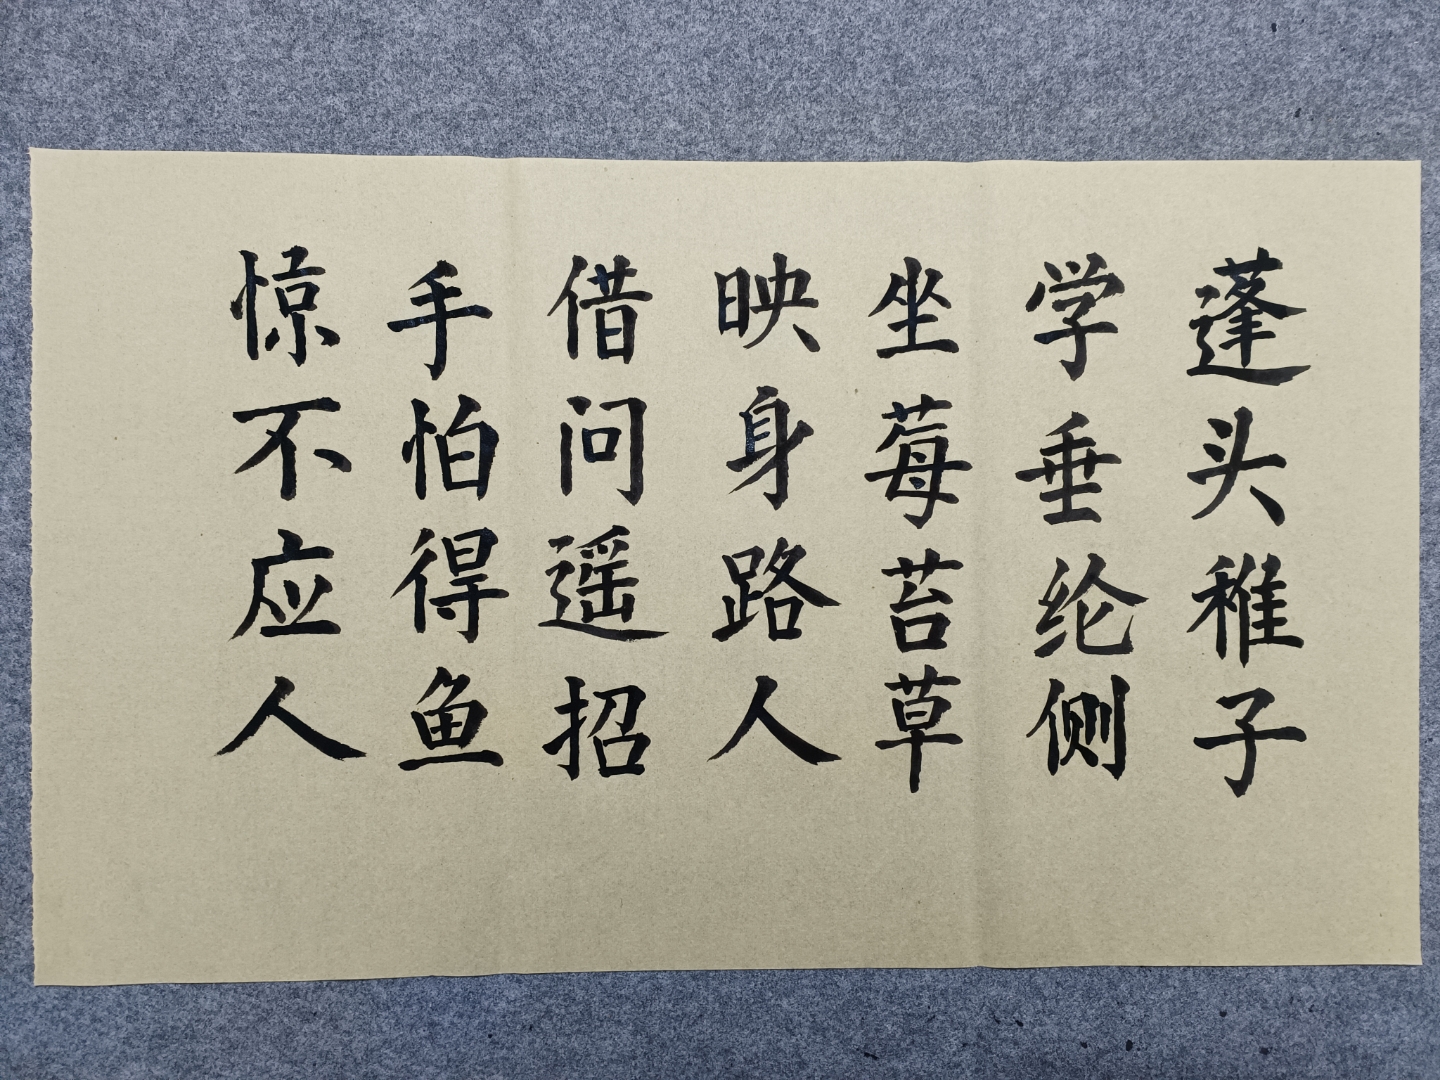 蓬头稚子
学垂纶侧
坐莓苔草
映身路人
借问遥招
手怕得鱼
惊不应人